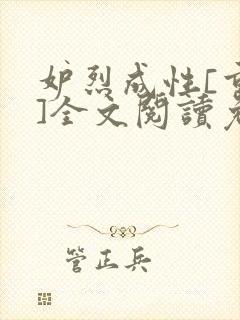 妒烈成性[
]全文閱讀
管正兵